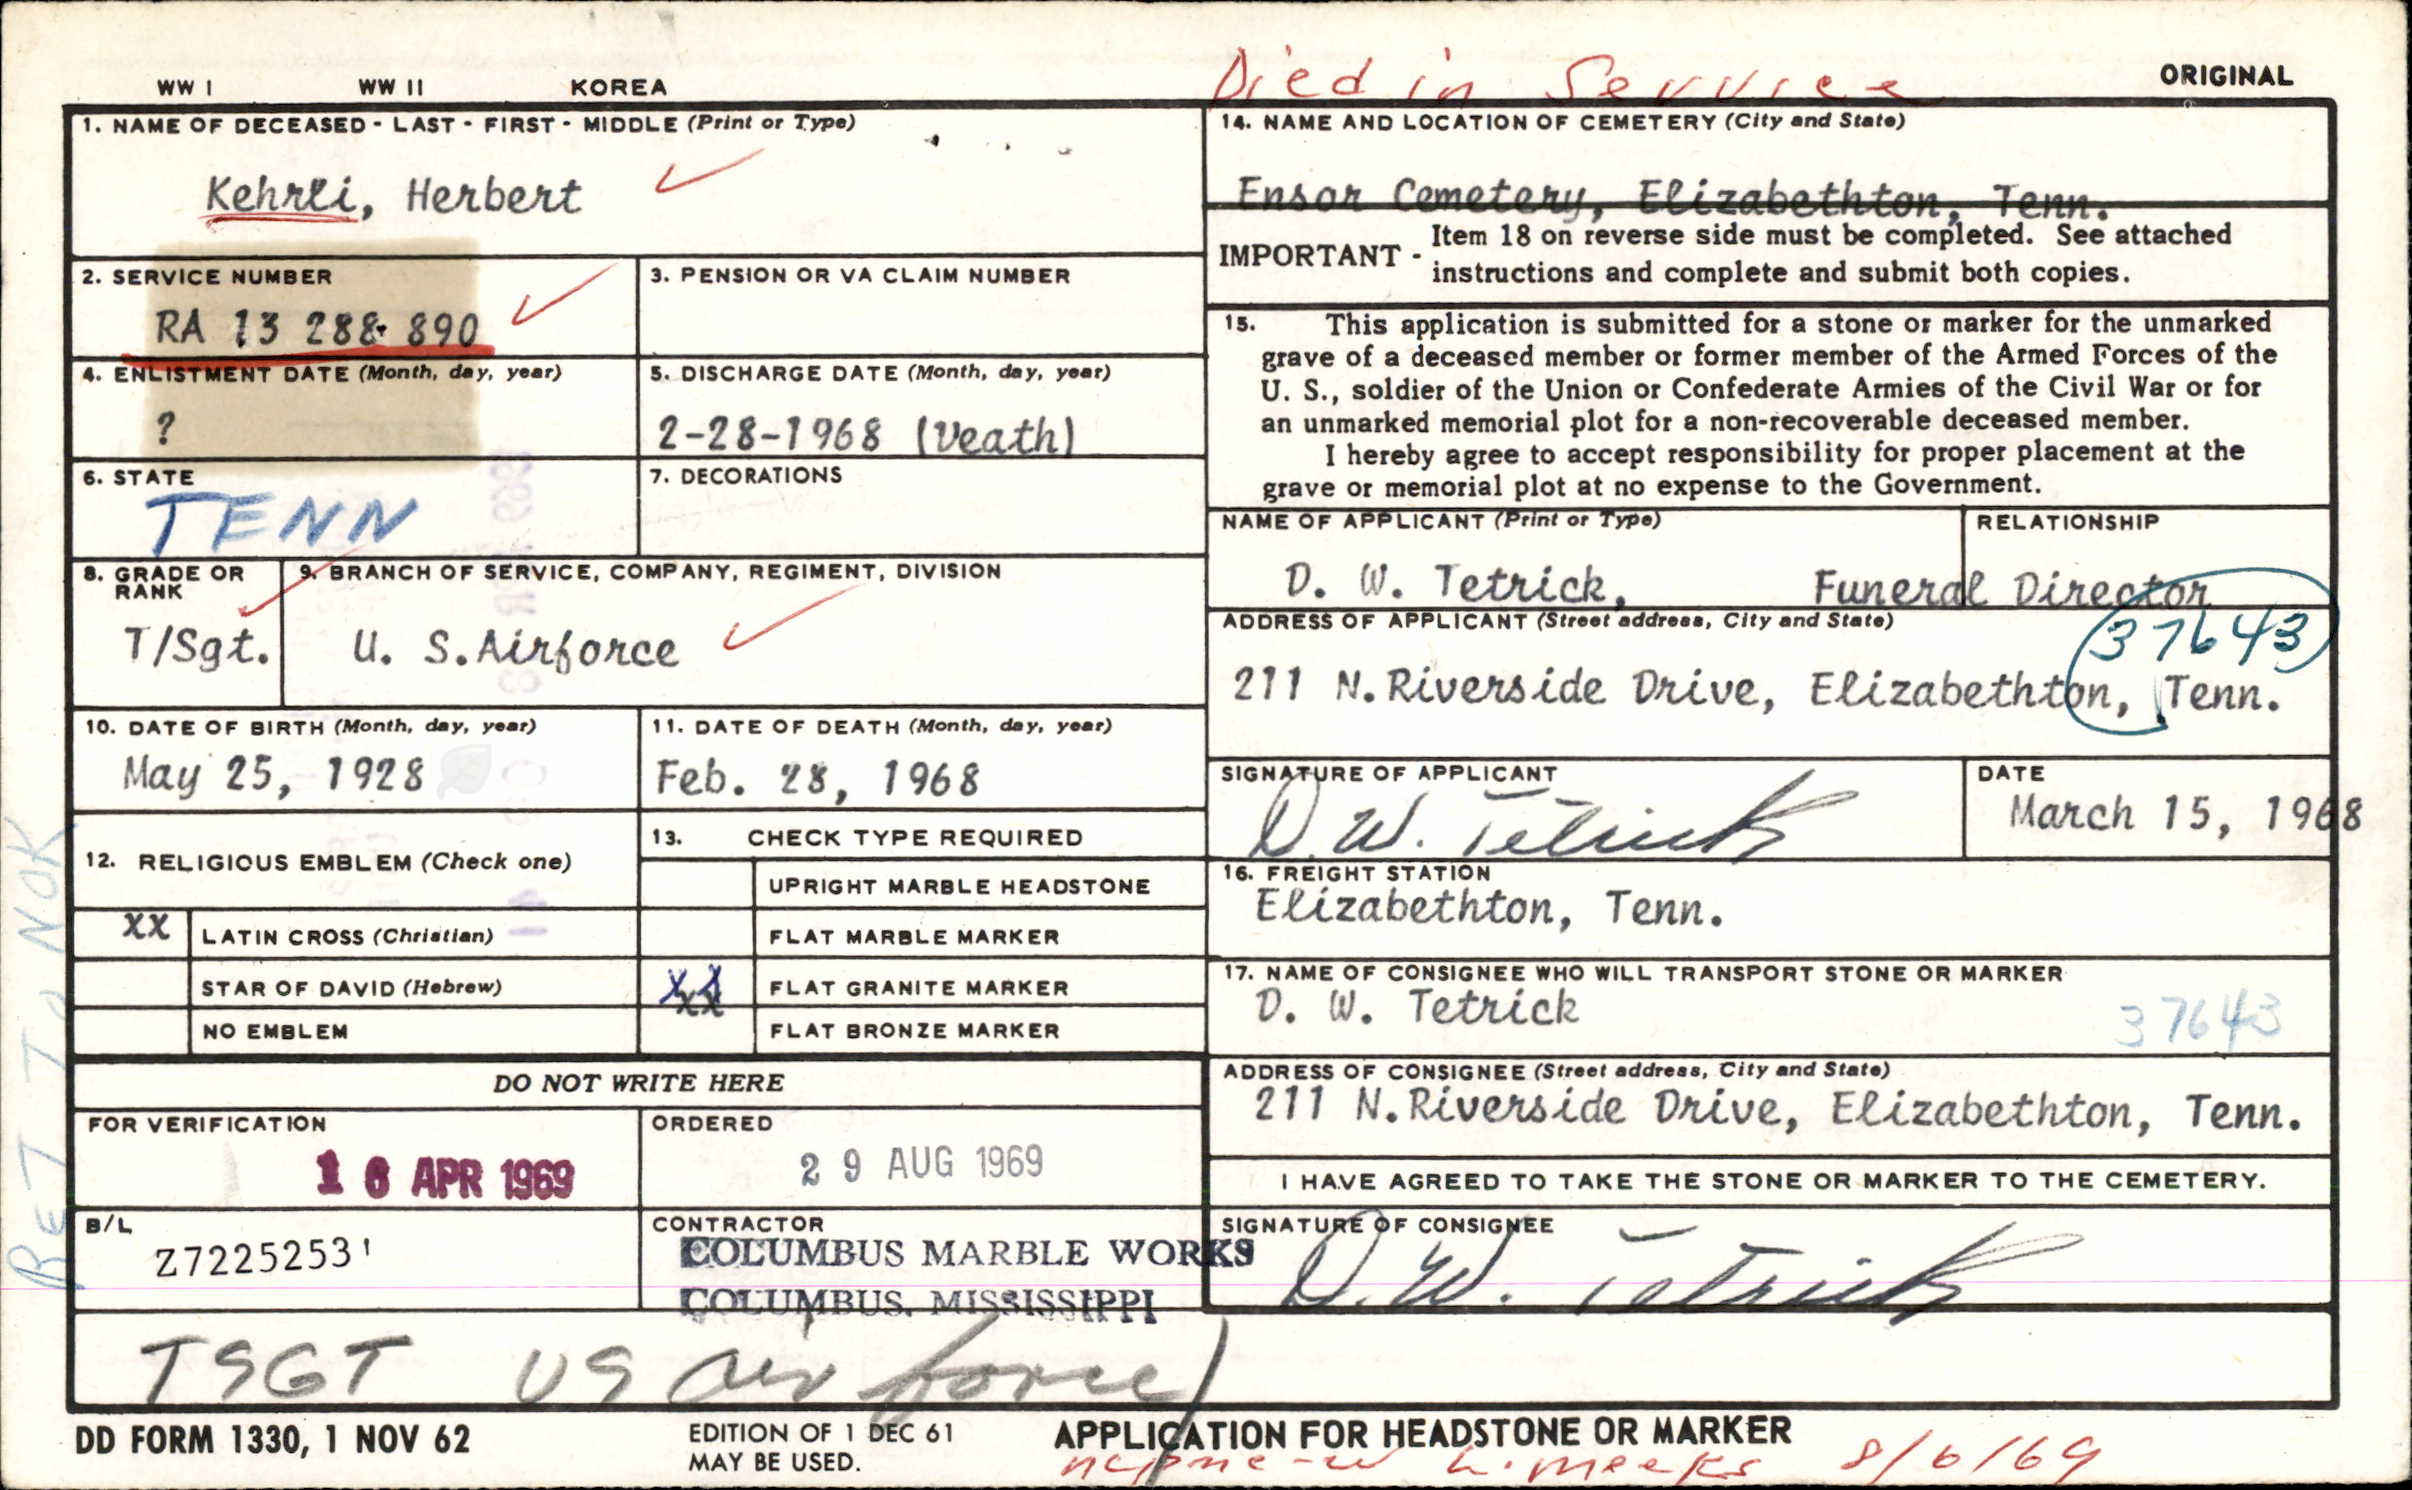 Died in Service
WW I WW II KOREA ORIGINAL
1. NAME OF DECEASED - LAST - FIRST - MIDDLE (Print or Type)
Kehrli, Herbert
2. SERVICE NUMBER
RA 13 288 890
3. PENSION OR VA CLAIM NUMBER
4. ENLISTMENT DATE (Month, day, year)
?
5. DISCHARGE DATE (Month, day, year)
2-28-1968 (Death)
6. STATE
TENN
7. DECORATIONS
8. GRADE OR
RANK
T/Sgt.
9. BRANCH OF SERVICE, COMPANY, REGIMENT, DIVISION
U. S.Airforce
10. DATE OF BIRTH (Month, day, year)
May 25, 1928
11. DATE OF DEATH (Month, day, year)
Feb. 28, 1968
12. RELIGIOUS EMBLEM (Check one)
xx LATIN CROSS (Christian)
STAR OF DAVID (Hebrew)
NO EMBLEM
13. CHECK TYPE REQUIRED
UPRIGHT MARBLE HEADSTONE
FLAT MARBLE MARKER
xx FLAT GRANITE MARKER
xx
FLAT BRONZE MARKER
DO NOT WRITE HERE
FOR VERIFICATION
16 APR 1969
ORDERED
29 AUG 1969
B/L
Z7225253
CONTRACTOR
COLUMBUS MARBLE WORKS
COLUMBUS, MISSISSIPPI
TSGT US air force
14. NAME AND LOCATION OF CEMETERY (City and State)
Ensor Cemetery, Elizabethton, Tenn.
IMPORTANT - Item 18 on reverse side must be completed. See attached
instructions and complete and submit both copies.
15. This application is submitted for a stone or marker for the unmarked
grave of a deceased member or former member of the Armed Forces of the
U. S., soldier of the Union or Confederate Armies of the Civil War or for
an unmarked memorial plot for a non-recoverable deceased member.
I hereby agree to accept responsibility for proper placement at the
grave or memorial plot at no expense to the Government.
NAME OF APPLICANT (Print or Type)
D. W. Tetrick,
RELATIONSHIP
Funeral Director
ADDRESS OF APPLICANT (Street address, City and State)
37643
211 N.Riverside Drive, Elizabethton, Tenn.
SIGNATURE OF APPLICANT
D. W. Tetrick
DATE
March 15, 1968
16. FREIGHT STATION
Elizabethton, Tenn.
17. NAME OF CONSIGNEE WHO WILL TRANSPORT STONE OR MARKER
D. W. Tetrick
37643
ADDRESS OF CONSIGNEE (Street address, City and State)
211 N.Riverside Drive, Elizabethton, Tenn.
I HAVE AGREED TO TAKE THE STONE OR MARKER TO THE CEMETERY.
SIGNATURE OF CONSIGNEE
D. W. Tetrick
DD FORM 1330, 1 NOV 62
EDITION OF 1 DEC 61
MAY BE USED.
APPLICATION FOR HEADSTONE OR MARKER
L. Meeks 8/6/69
RET TO NOK